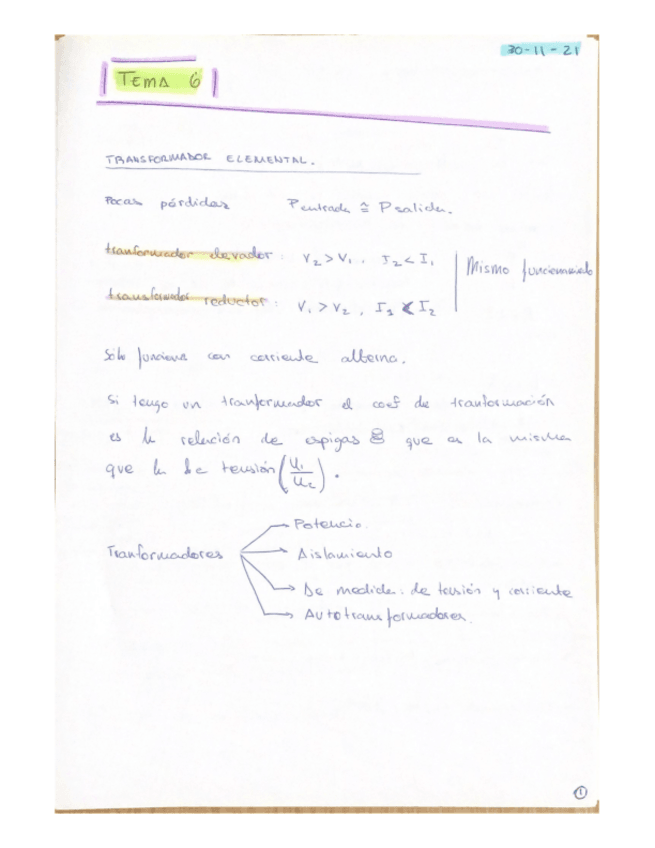 30-11-21
TEMA 6
TRANSFORMADOR ELEMENTAL.
Pocas pérdidas P entrada ≅ P salida.
tranformador elevador: V₂ > V₁, I₂ < I₁
Mismo funcionamiento
transformador reductor: V₁ > V₂, I₁ < I₂
Sólo funciona con corriente alterna.
Si tengo un tranformador el coef de tranformación
es la relación de espigas que es la misma
que la de tensión (U₁/U₂).
Potencia.
Tranformadores Aislamiento
De medida: de tensión y corriente
Autotransformadores.
1